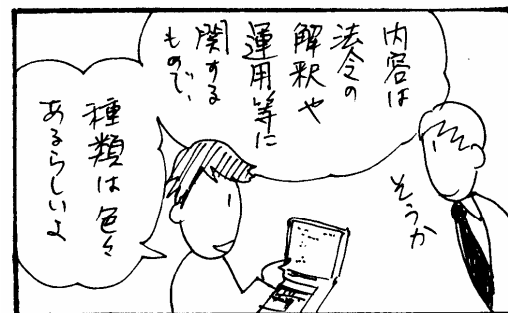 内容は
法令の
解釈や
運用等に
関する
もので、
種類は色々
あるらしいよ
そうか